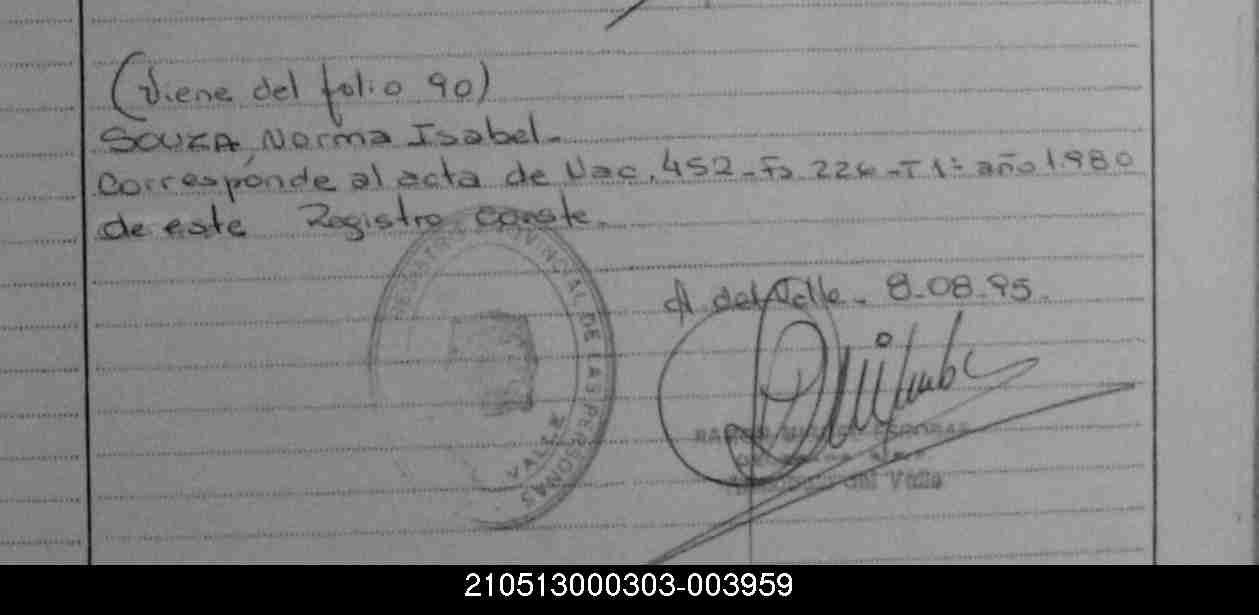 (Viene del folio 90)
SOUZA, Norma Isabel.
Corresponde al acta de Nac. 452 - Fo 226 - T 1º año 1.980
de este Registro conste.
REGISTRO PROVINCIAL DE LAS PERSONAS
VALLE
A del Valle. 8.08.95.
del Valle
210513000303-003959